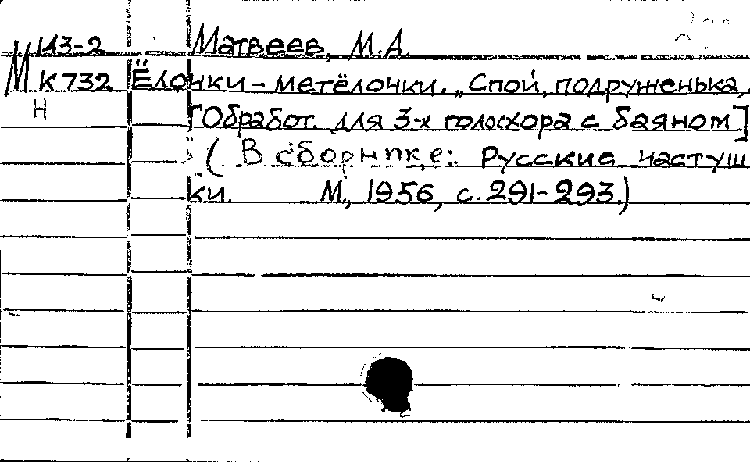 М 143-2 Матвеев, М.А.
К 732 Ёлочки-метёлочки. „Спой, подруженька,
Н [Обработ. для 3-х голос. хора с баяном]
( В сборнике: Русские частуш
ки. М., 1956, с. 291-293.)